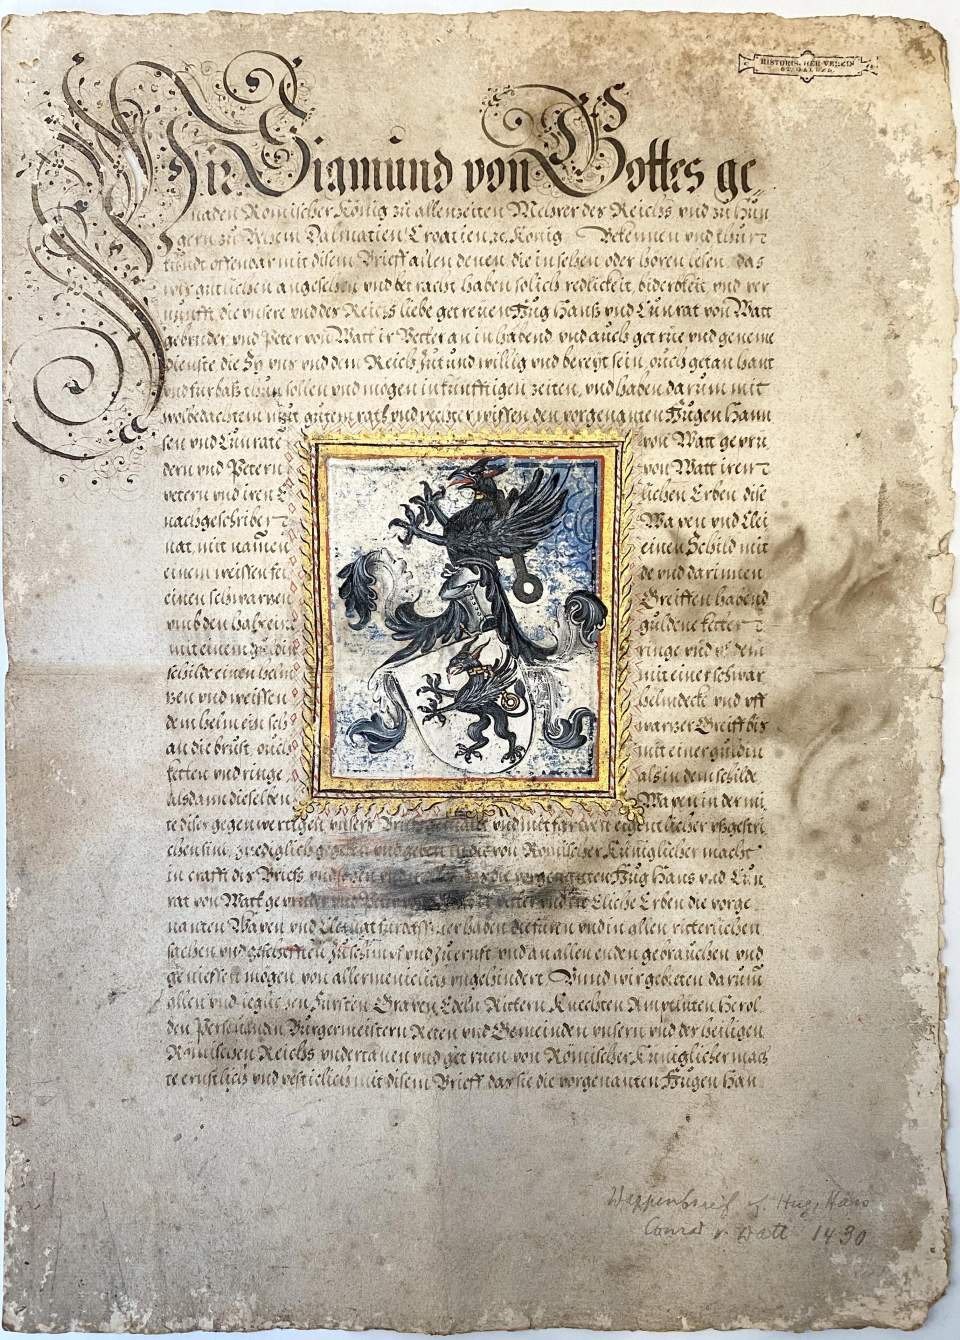 HISTORISCHER VEREIN
ST. GALLEN
Wir Sigmund von Gottes ge-
naden Römischer König zu allenzeiten Mehrer des Reichs vnd zu Hun
gern zu Behem Dalmatien Croatien ꝛc. König Bekennen vnd thun
kundt offenbar mit disem Brieff allen denen die in sehen oder hören lesen, das
wir gütlichen angesehen vnd betracht haben solich redlickeit, biderbkeit vnd ver
nunfft, die vnsere vnd des Reichs liebe getreuen Hug Hanß vnd Cunrat von Watt
gebruder vnd Peter von Watt ir Vetter an in habend vnd auch getrüe vnd geneme
dienste die Sy vns vnd dem Reich, mit vnd willig vnd bereyt sein, ouch getan hant
vnd fürbaß thun sollen vnd mögen in künfftigen zeiten, vnd haben darum mit
wolbedachtem mut gütem rath vnd rechter wissen den vorgenanten Hugen Hann
sen vnd Cunrate von Watt gebru
dern vnd Petern von Watt iren
vetern vnd iren Elichen Erben dise
nachgeschriben Wapen vnd Clei
nat, mit namen einen Schild mit
einem weissen fel de vnd darinnen
einen schwarzen Greiffen habend
vmb den hals eine guldene ketten
mit einem guldin ringe vnd vf dem
schilde einen helm mit einer schwar
zen vnd weissen helmdecke vnd vff
dem helm ein sch warzer Greiff bis
an die brust, ouch mit einer guldin
ketten vnd ringe als in dem schilde
Alsdann dieselben Wapen in der mi
te diser gegenwertigen vnsers Brieffs gemalet vnd mit farwen eigentlicher vßgestri
chen sint, gnediglich gegeben vnd geben in dis von Römischer Küniglicher macht
in crafft dis Brieffs vnd das die vorgenanten Hug Hans vnd Cun
rat von Watt gebruder vnd Peter von Watt ir vetter vnd ire Eliche Erben die vorge
nanten Wapen vnd Cleinat fürbasser haben die füren vnd in allen ritterlichen
sachen vnd gescheften zu schimpf vnd zu ernst vnd an allen enden gebrauchen vnd
geniessen mogen von allermeniclich vngehindert. Vnnd wir gebieten darum
allen vnd iegclichen Fürsten Graven Edeln Rittern Knechten Amptlüten Herol
den Persevanden Burgermeistern Reten vnd Gemeinden vnsern vnd der heiligen
Römischen Reichs vndertanen vnd getruen von Römischer Küniglicher mach
te ernstlich vnd vesticlich mit disem Brieff das sie die vorgenanten Hugen Han
Wappenbrief f. Hug, Hans
Conrad v. Watt 1430